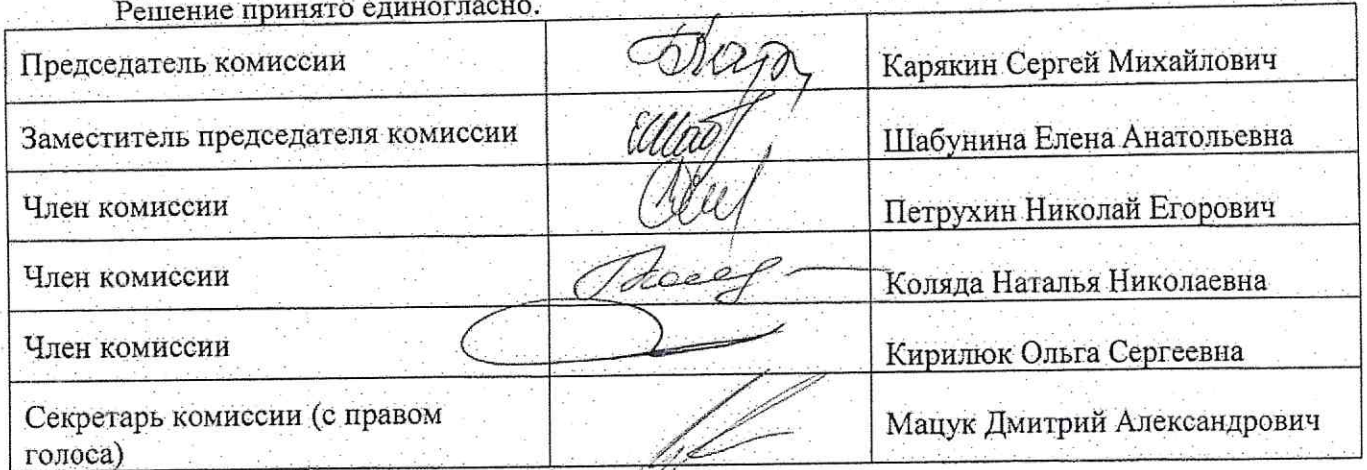 Решение принято единогласно.
Председатель комиссии
Карякин Сергей Михайлович
Заместитель председателя комиссии
Шабунина Елена Анатольевна
Член комиссии
Петрухин Николай Егорович
Член комиссии
Коляда Наталья Николаевна
Член комиссии
Кирилюк Ольга Сергеевна
Секретарь комиссии (с правом
голоса)
Мацук Дмитрий Александрович